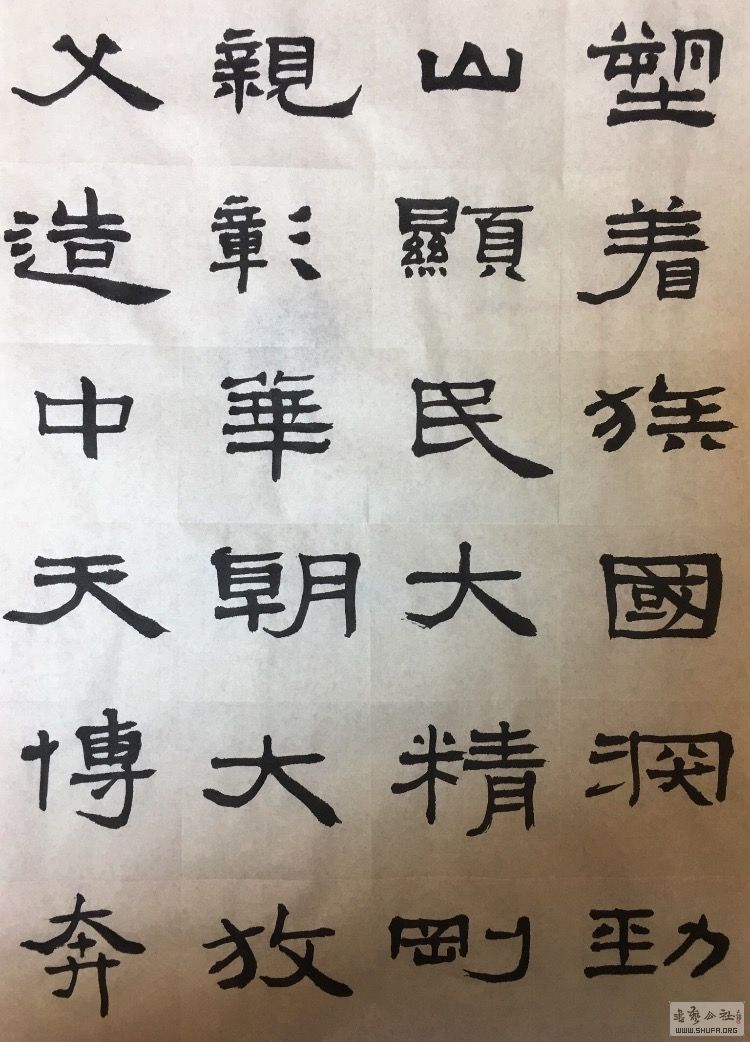 父親山塑
造彰顯着
中華民族
天朝大國
博大精深
奔放剛勁
WWW.SHUFA.ORG